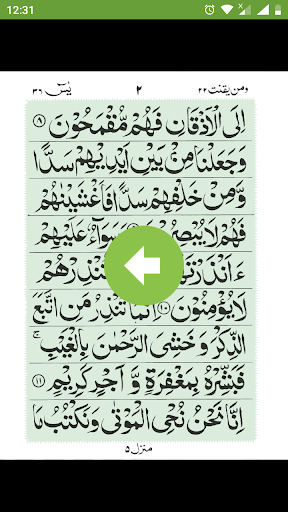 12:31
يٰسٓ ٣٦ ٢ ومن يقنت ٢٢
اِلَى الْاَذْقَانِ فَهُمْ مُّقْمَحُوْنَ
وَجَعَلْنَا مِنْۢ بَيْنِ اَيْدِيْهِمْ سَدًّا
وَّمِنْ خَلْفِهِمْ سَدًّا فَاَغْشَيْنٰهُمْ
فَهُمْ لَا وَسَوَآءٌ عَلَيْهِمْ
لَا يُؤْمِنُوْنَ ١٠ اِنَّمَا تُنْذِرُ مَنِ اتَّبَعَ
الذِّكْرَ وَخَشِيَ الرَّحْمٰنَ بِالْغَيْبِ ۚ
فَبَشِّرْهُ بِمَغْفِرَةٍ وَّ اَجْرٍ كَرِيْمٍ ١١
اِنَّا نَحْنُ نُحْيِ الْمَوْتٰى وَنَكْتُبُ مَا
منزل ٥